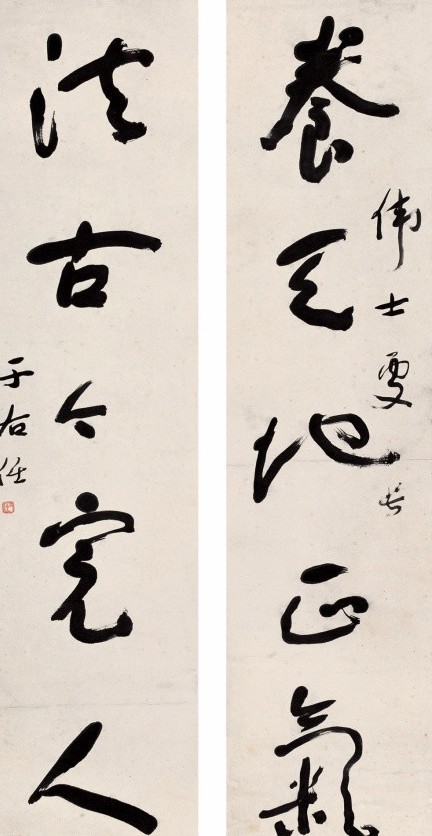 偉士處長
養天地正氣
法古今完人
于右任